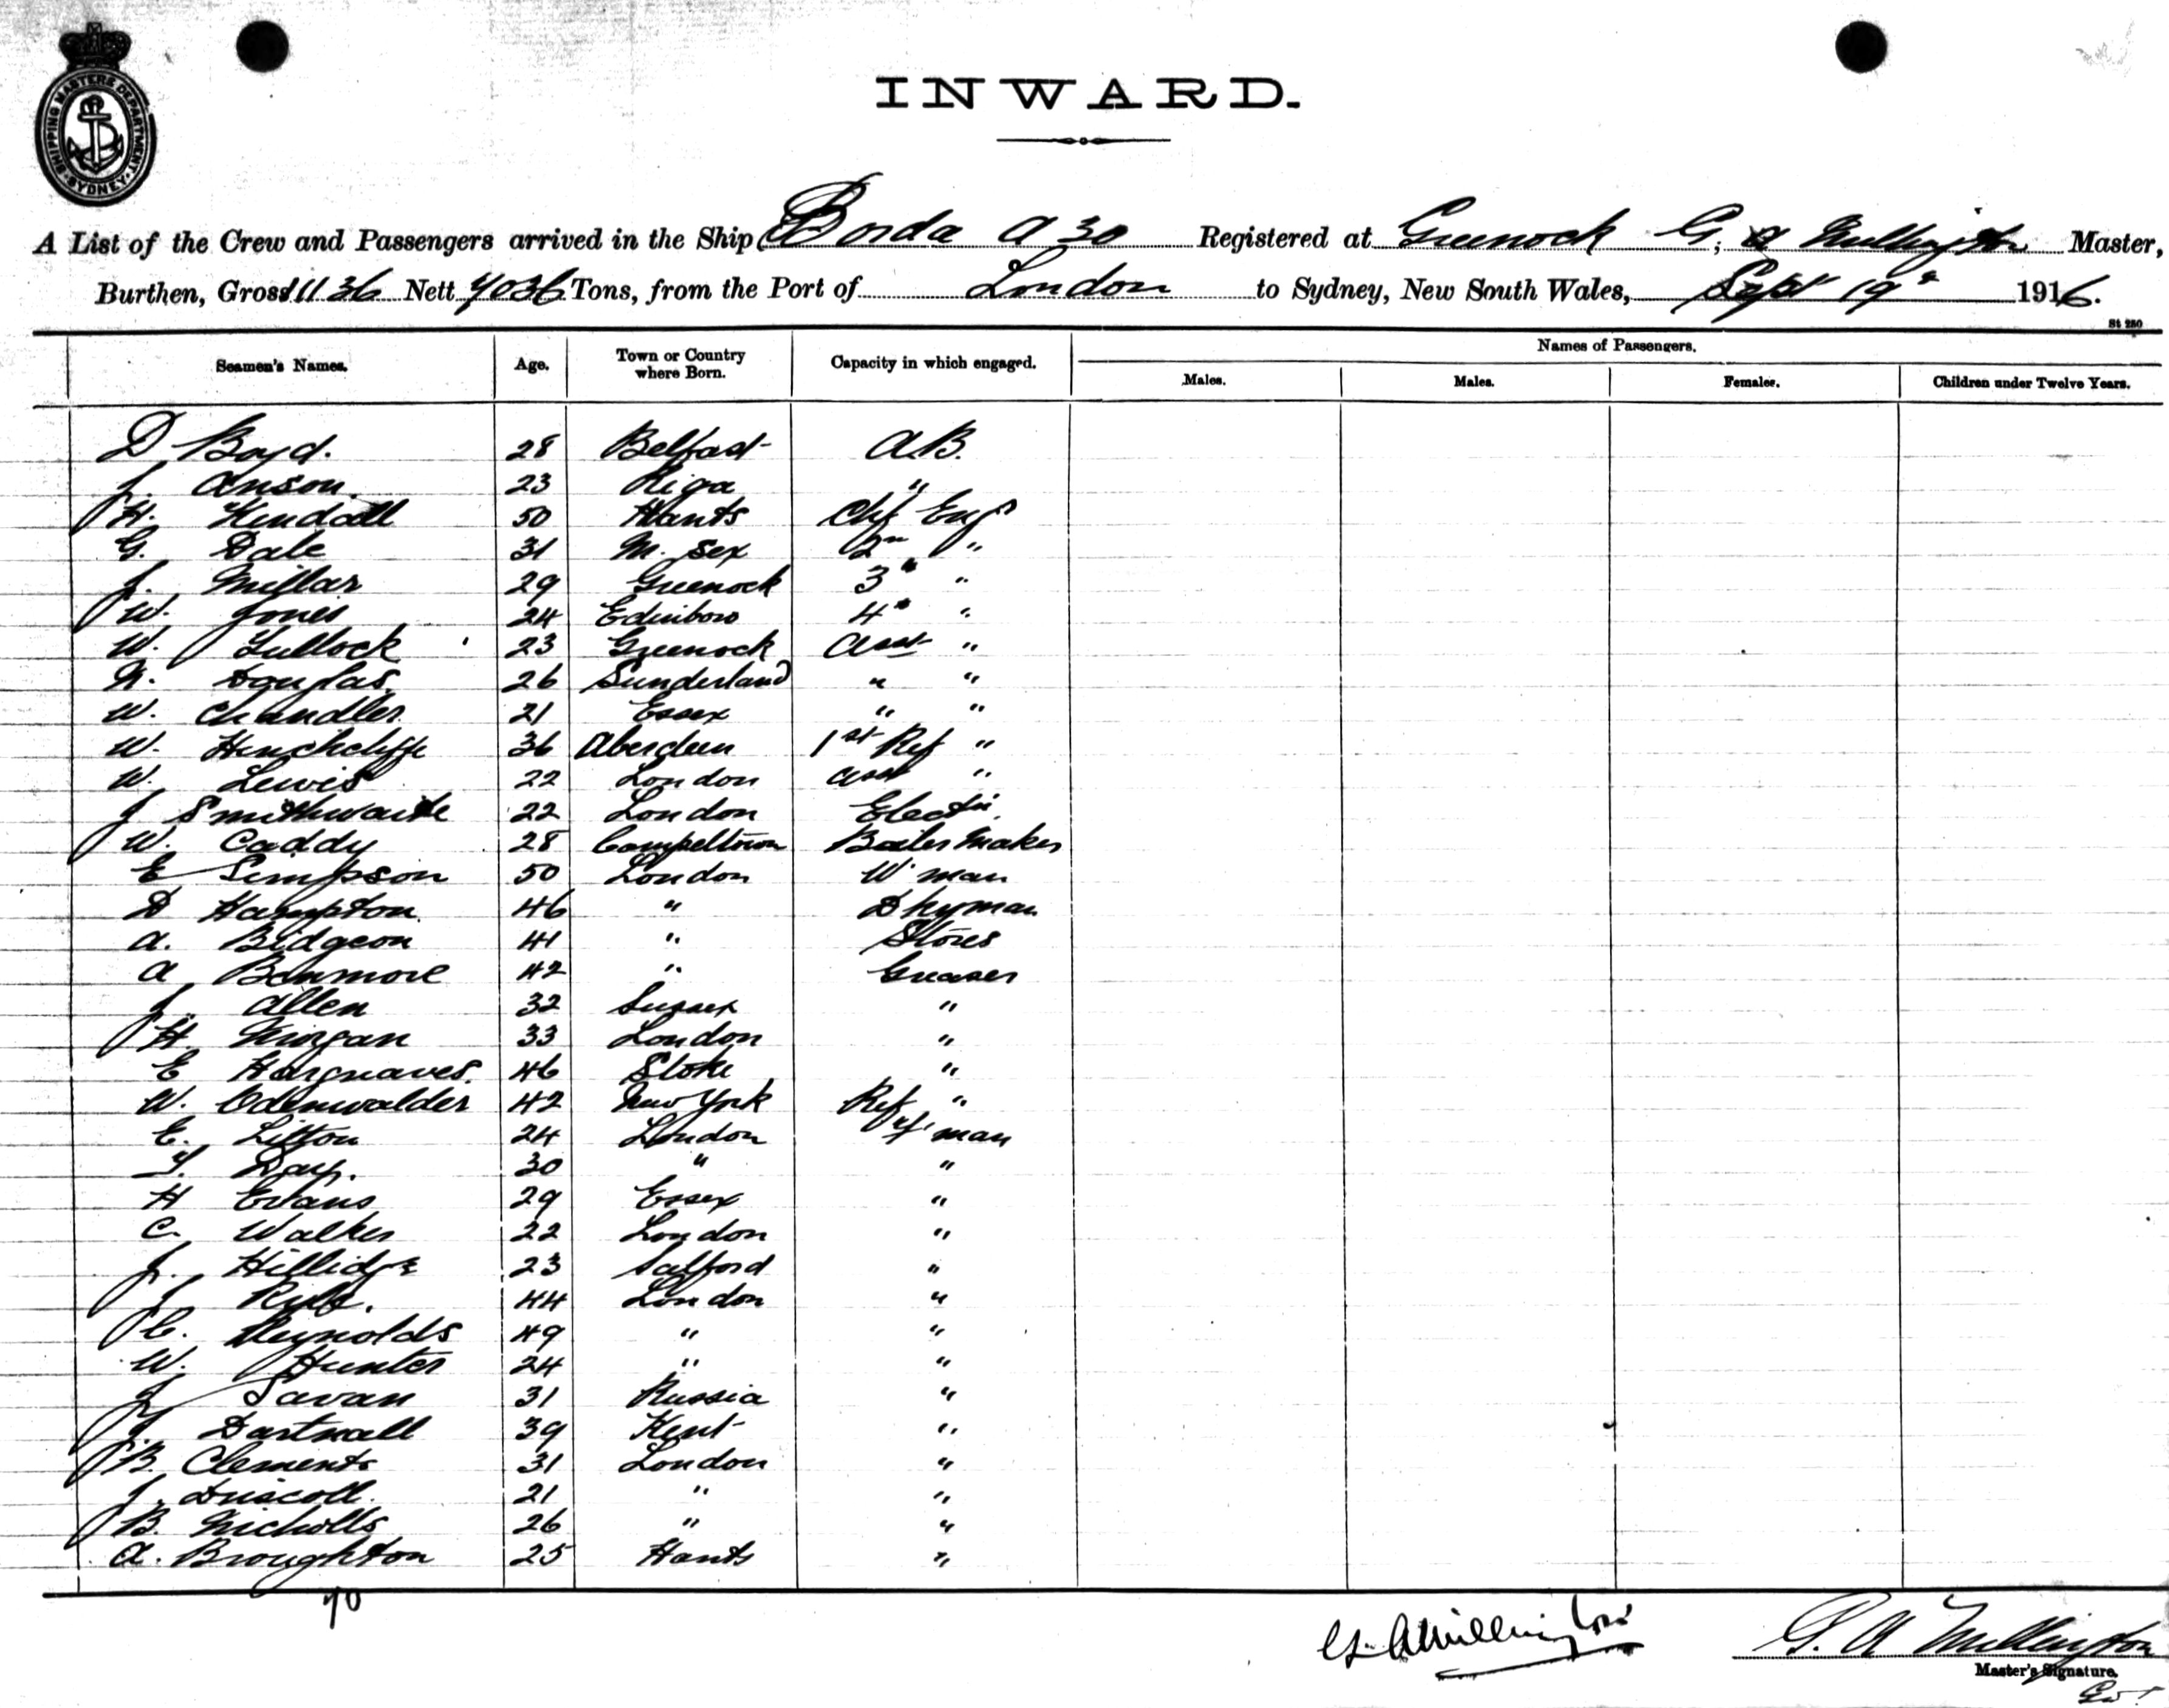 SHIPPING MASTERS DEPARTMENT · SYDNEY ·
INWARD.
A List of the Crew and Passengers arrived in the Ship Borda A 30 Registered at Greenock G. A Millington Master,
Burthen, Gross 11136 Nett 7036 Tons, from the Port of London to Sydney, New South Wales, Sept 19th 1916.
St 280
Seamen's Names. Age. Town or Country where Born. Capacity in which engaged. Names of Passengers.
Males. Males. Females. Children under Twelve Years.
D Boyd. 28 Belfast A.B.
J. Anson. 23 Riga "
H. Kendall 50 Hants Chf Engr
G. Dale 31 M. sex 2nd "
J. Millar 29 Greenock 3rd "
W. Jones 24 Edinboro 4th "
W. Tullock 23 Greenock Asst "
N. Douglas. 26 Sunderland " "
W. Chandler 21 Essex " "
W. Hinchcliffe 36 Aberdeen 1st Ref "
W. Lewis 22 London Asst "
J Smithwaite 22 London Electn.
W. Caddy 28 Campeltown Boiler Maker
E Simpson 50 London W man
D Hampton. 46 " Dkyman
A. Bridgeon 41 " Stores
A Banmore 42 " Greaser
J. Allen 32 Sussex "
H. Morgan 33 London "
E Hargreaves. 46 Stoke "
W. Odenwalder 42 New York Ref "
E. Litton 24 London F'man
T. Day. 30 " "
H Evans 29 Essex "
C. Walker 22 London "
J. Hillidge 23 Salford "
J 44 London "
C. Reynolds 49 " "
W. Hunter 24 " "
J Savan 31 Russia "
J. Dartnall 39 Kent "
B. Clements 31 London "
J. Driscoll. 21 " "
B. Nicholls 26 " "
A. Broughton 25 Hants "
70
G. A Millington
G. A Millington
Master's Signature.